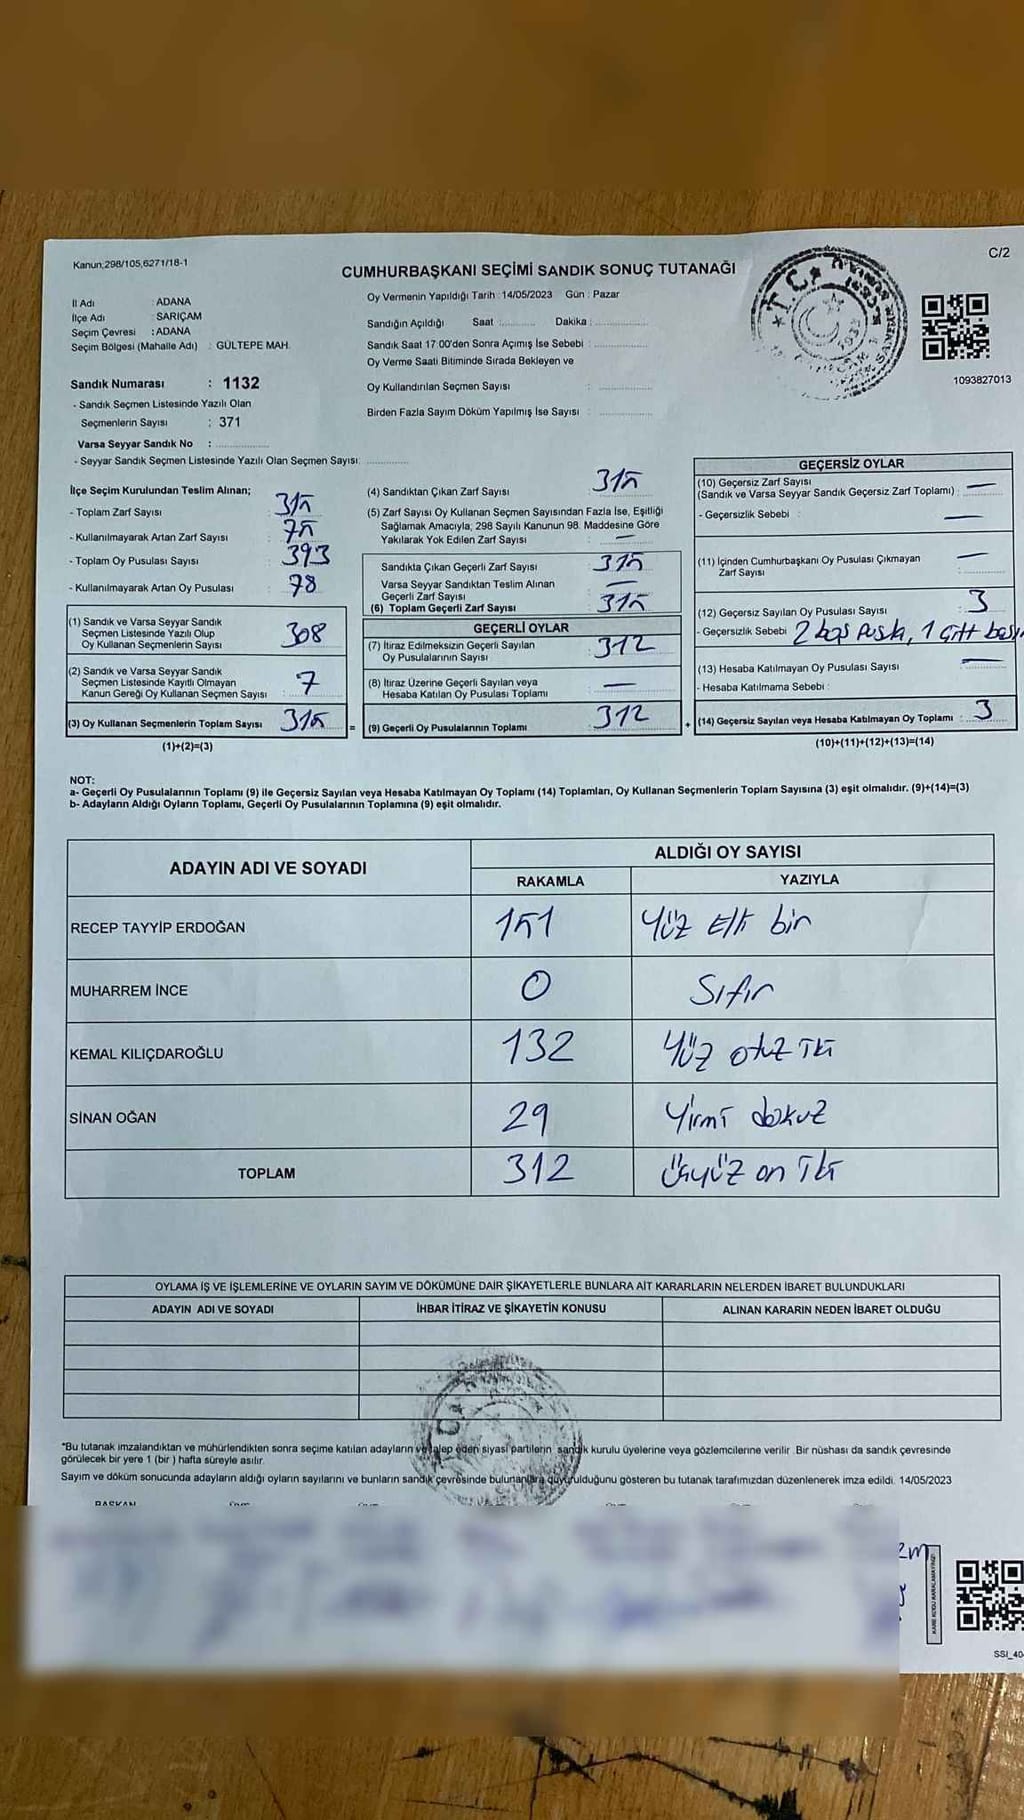 Kanun;298/105,6271/18-1
C/2
CUMHURBAŞKANI SEÇİMİ SANDIK SONUÇ TUTANAĞI
İl Adı : ADANA
İlçe Adı : SARIÇAM
Seçim Çevresi : ADANA
Seçim Bölgesi (Mahalle Adı) : GÜLTEPE MAH.
Oy Vermenin Yapıldığı Tarih : 14/05/2023 Gün : Pazar
Sandığın Açıldığı Saat : Dakika :
Sandık Saat 17:00'den Sonra Açımış İse Sebebi :
Oy Verme Saati Bitiminde Sırada Bekleyen ve
Oy Kullandırılan Seçmen Sayısı :
Birden Fazla Sayım Döküm Yapılmış İse Sayısı :
T.C.
1093827013
Sandık Numarası : 1132
- Sandık Seçmen Listesinde Yazılı Olan
Seçmenlerin Sayısı : 371
Varsa Seyyar Sandık No :
- Seyyar Sandık Seçmen Listesinde Yazılı Olan Seçmen Sayısı:
İlçe Seçim Kurulundan Teslim Alınan;
- Toplam Zarf Sayısı : 315
- Kullanılmayarak Artan Zarf Sayısı : 75
- Toplam Oy Pusulası Sayısı : 393
- Kullanılmayarak Artan Oy Pusulası : 78
(1) Sandık ve Varsa Seyyar Sandık
Seçmen Listesinde Yazılı Olup
Oy Kullanan Seçmenlerin Sayısı : 308
(2) Sandık ve Varsa Seyyar Sandık
Seçmen Listesinde Kayıtlı Olmayan
Kanun Gereği Oy Kullanan Seçmen Sayısı : 7
(3) Oy Kullanan Seçmenlerin Toplam Sayısı : 315
(1)+(2)=(3)
(4) Sandıktan Çıkan Zarf Sayısı : 315
(5) Zarf Sayısı Oy Kullanan Seçmen Sayısından Fazla İse, Eşitliği
Sağlamak Amacıyla; 298 Sayılı Kanunun 98. Maddesine Göre
Yakılarak Yok Edilen Zarf Sayısı : —
Sandıkta Çıkan Geçerli Zarf Sayısı : 315
Varsa Seyyar Sandıktan Teslim Alınan
Geçerli Zarf Sayısı : —
(6) Toplam Geçerli Zarf Sayısı : 315
GEÇERLİ OYLAR
(7) İtiraz Edilmeksizin Geçerli Sayılan
Oy Pusulalarının Sayısı : 312
(8) İtiraz Üzerine Geçerli Sayılan veya
Hesaba Katılan Oy Pusulası Toplamı : —
= (9) Geçerli Oy Pusulalarının Toplamı : 312
GEÇERSİZ OYLAR
(10) Geçersiz Zarf Sayısı
(Sandık ve Varsa Seyyar Sandık Geçersiz Zarf Toplamı) : —
- Geçersizlik Sebebi : —
(11) İçinden Cumhurbaşkanı Oy Pusulası Çıkmayan
Zarf Sayısı : —
(12) Geçersiz Sayılan Oy Pusulası Sayısı : 3
- Geçersizlik Sebebi 2 boş Pusla, 1 Çift
(13) Hesaba Katılmayan Oy Pusulası Sayısı : —
- Hesaba Katılmama Sebebi :
+ (14) Geçersiz Sayılan veya Hesaba Katılmayan Oy Toplamı : 3
(10)+(11)+(12)+(13)=(14)
NOT:
a- Geçerli Oy Pusulalarının Toplamı (9) ile Geçersiz Sayılan veya Hesaba Katılmayan Oy Toplamı (14) Toplamları, Oy Kullanan Seçmenlerin Toplam Sayısına (3) eşit olmalıdır. (9)+(14)=(3)
b- Adayların Aldığı Oyların Toplamı, Geçerli Oy Pusulalarının Toplamına (9) eşit olmalıdır.
ADAYIN ADI VE SOYADI
ALDIĞI OY SAYISI
RAKAMLA YAZIYLA
RECEP TAYYİP ERDOĞAN 151 Yüz Elli bir
MUHARREM İNCE 0 Sıfır
KEMAL KILIÇDAROĞLU 132 Yüz otuz iki
SİNAN OĞAN 29 Yirmi dokuz
TOPLAM 312 Üçyüz on iki
OYLAMA İŞ VE İŞLEMLERİNE VE OYLARIN SAYIM VE DÖKÜMÜNE DAİR ŞİKAYETLERLE BUNLARA AİT KARARLARIN NELERDEN İBARET BULUNDUKLARI
ADAYIN ADI VE SOYADI İHBAR İTİRAZ VE ŞİKAYETİN KONUSU ALINAN KARARIN NEDEN İBARET OLDUĞU
*Bu tutanak imzalandıktan ve mühürlendikten sonra seçime katılan adayların ve talep eden siyasi partilerin sandık kurulu üyelerine veya gözlemcilerine verilir. Bir nüshası da sandık çevresinde
görülecek bir yere 1 (bir ) hafta süreyle asılır.
Sayım ve döküm sonucunda adayların aldığı oyların sayılarını ve bunların sandık çevresinde bulunanlara duyurulduğunu gösteren bu tutanak tarafımızdan düzenlenerek imza edildi. 14/05/2023
BAŞKAN
KARE KODU KARALAMAYINIZ!